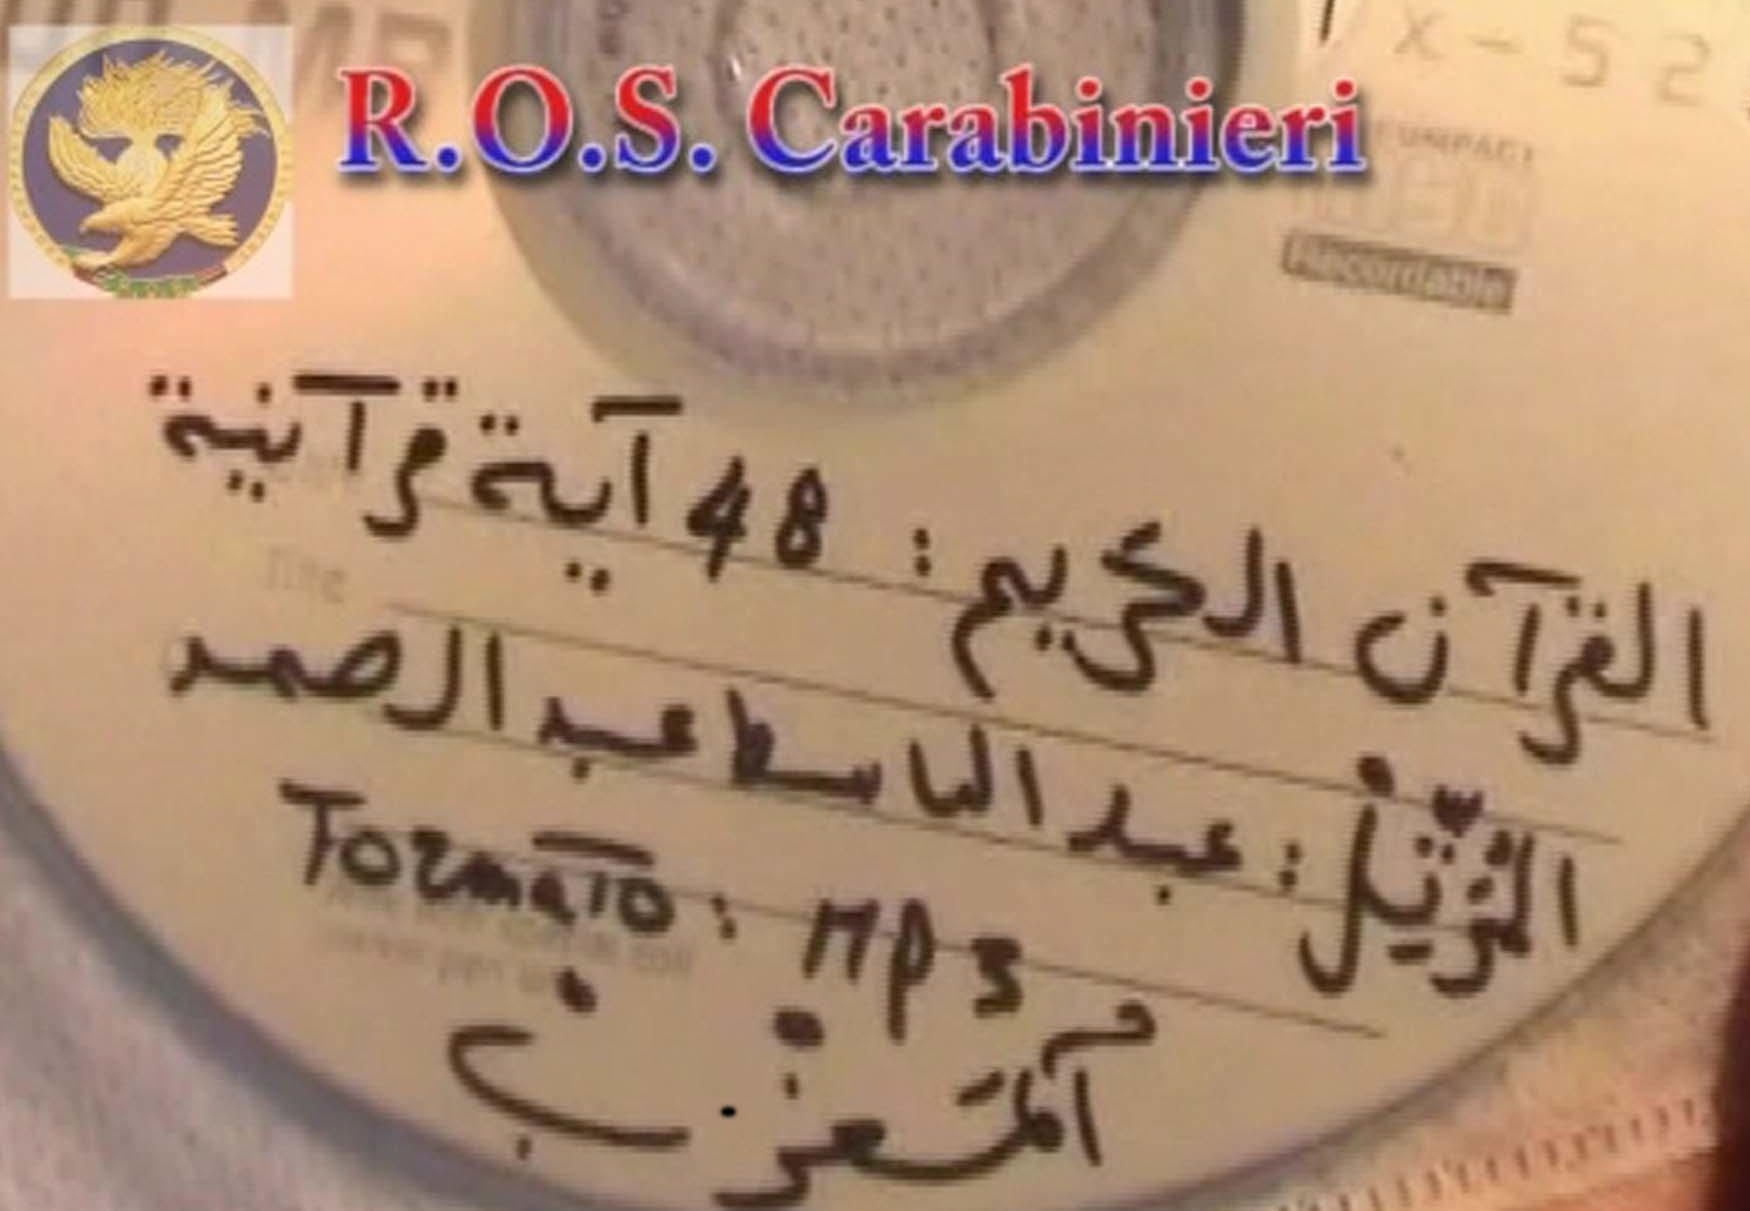 R.O.S. Carabinieri
x-52
COMPACT
Recordable
القرآن الكريم : 48 آية قرآنية
Title
المُرَتِّلْ : عبد الباسط عبد الصمد
Formato : MP3